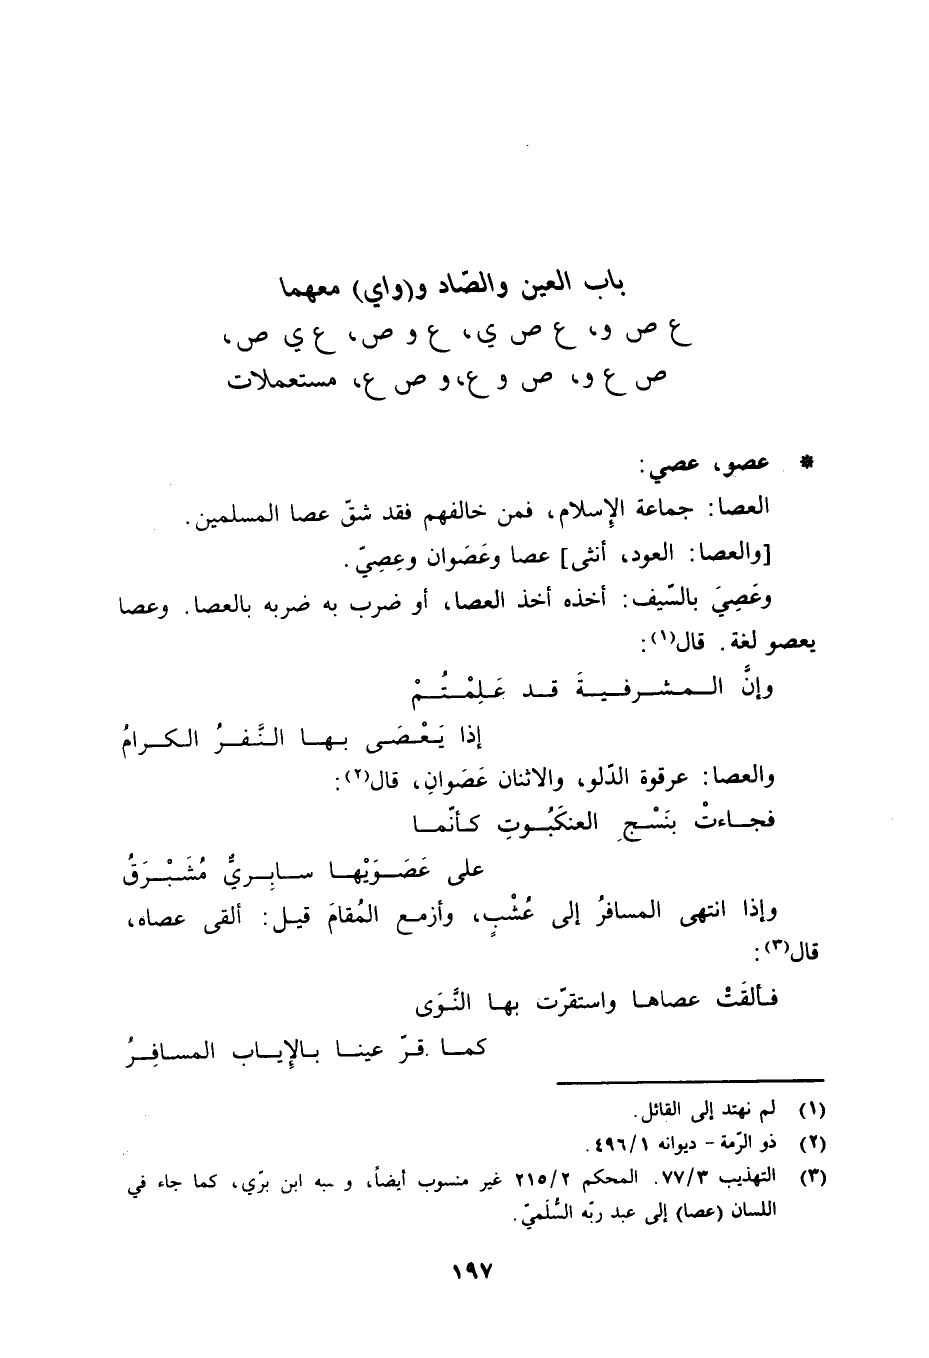 باب العين والصّاد و(واي) معهما
ع ص و، ع ص ي، ع و ص، ع ي ص،
ص ع و، ص و ع، و ص ع، مستعملات
* عصو، عصي:
العصا: جماعة الإسلام، فمن خالفهم فقد شقّ عصا المسلمين.
[والعصا: العود، أنثى] عصا وعَصَوان وعِصِيّ.
وعَصِيَ بالسّيف: أخذه أخذ العصا، أو ضرب به ضربه بالعصا. وعصا
يعصو لغة. قال(١):
وإنَّ المشرفيةَ قد عَلِمْتُمْ
إذا يَعْصَى بها النَّفرُ الكرامُ
والعصا: عرقوة الدّلو، والاثنان عَصَوانِ، قال(٢):
فجاءتْ بنَسْجِ العنكَبُوتِ كأنّما
على عَصَوَيْها سابِريٌّ مُشَبْرَقُ
وإذا انتهى المسافرُ إلى عُشْبٍ، وأزمع المُقامَ قيل: ألقى عصاه،
قال(٣):
فألقَتْ عصاها واستقرّت بها النَّوَى
كما قرّ عينا بالإياب المسافِرُ
(١) لم نهتد إلى القائل.
(٢) ذو الرّمة - ديوانه ٤٩٦/١.
(٣) التهذيب ٧٧/٣. المحكم ٢١٥/٢ غير منسوب أيضاً، و سبه ابن برّي، كما جاء في
اللسان (عصا) إلى عبد ربّه السُّلَميّ.
١٩٧